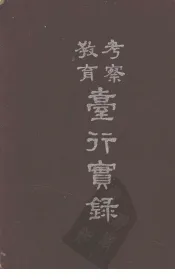 考察
教育
臺行實錄